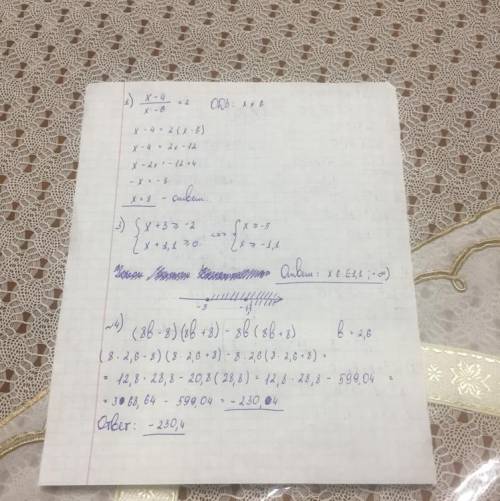 2) x-4/x-6 = 2 ОДЗ: x ≠ 6
x-4 = 2(x-6)
x-4 = 2x-12
x-2x = -12+4
-x = -8
x=8 - ответ.
3) { x+3 ≥ -2 <=> { x ≥ -5
x+1,1 ≥ 0 x ≥ -1,1
Ответ: x ∈ [-1,1; +∞)
-5 -1,1
№4) (8b-8)(8b+8) - 8b(8b+8) b = 2,6
(8·2,6-8)(8·2,6+8) - 8·2,6(8·2,6+8) =
= 12,8·28,8 - 20,8(28,8) = 12,8·28,8 - 599,04 =
= 368,64 - 599,04 = -230,4
Ответ: -230,4